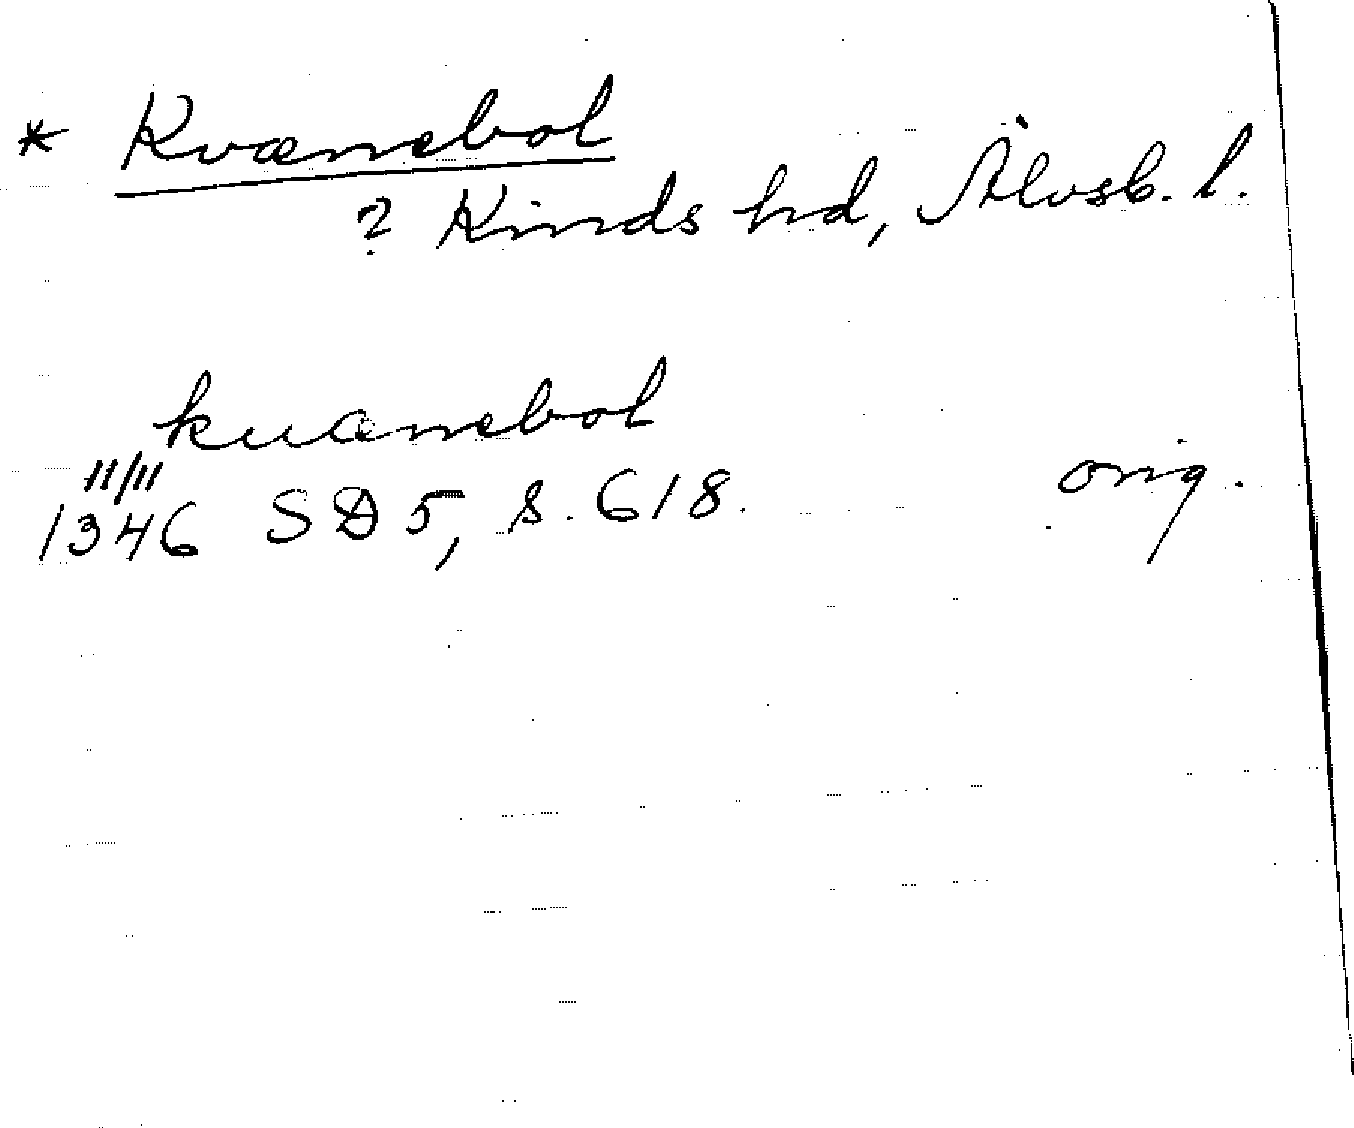 * Kvænebol
? Kinds hd, Älvsb. l.
kuænebol
11/11
1346 SD 5, s. 618. orig.